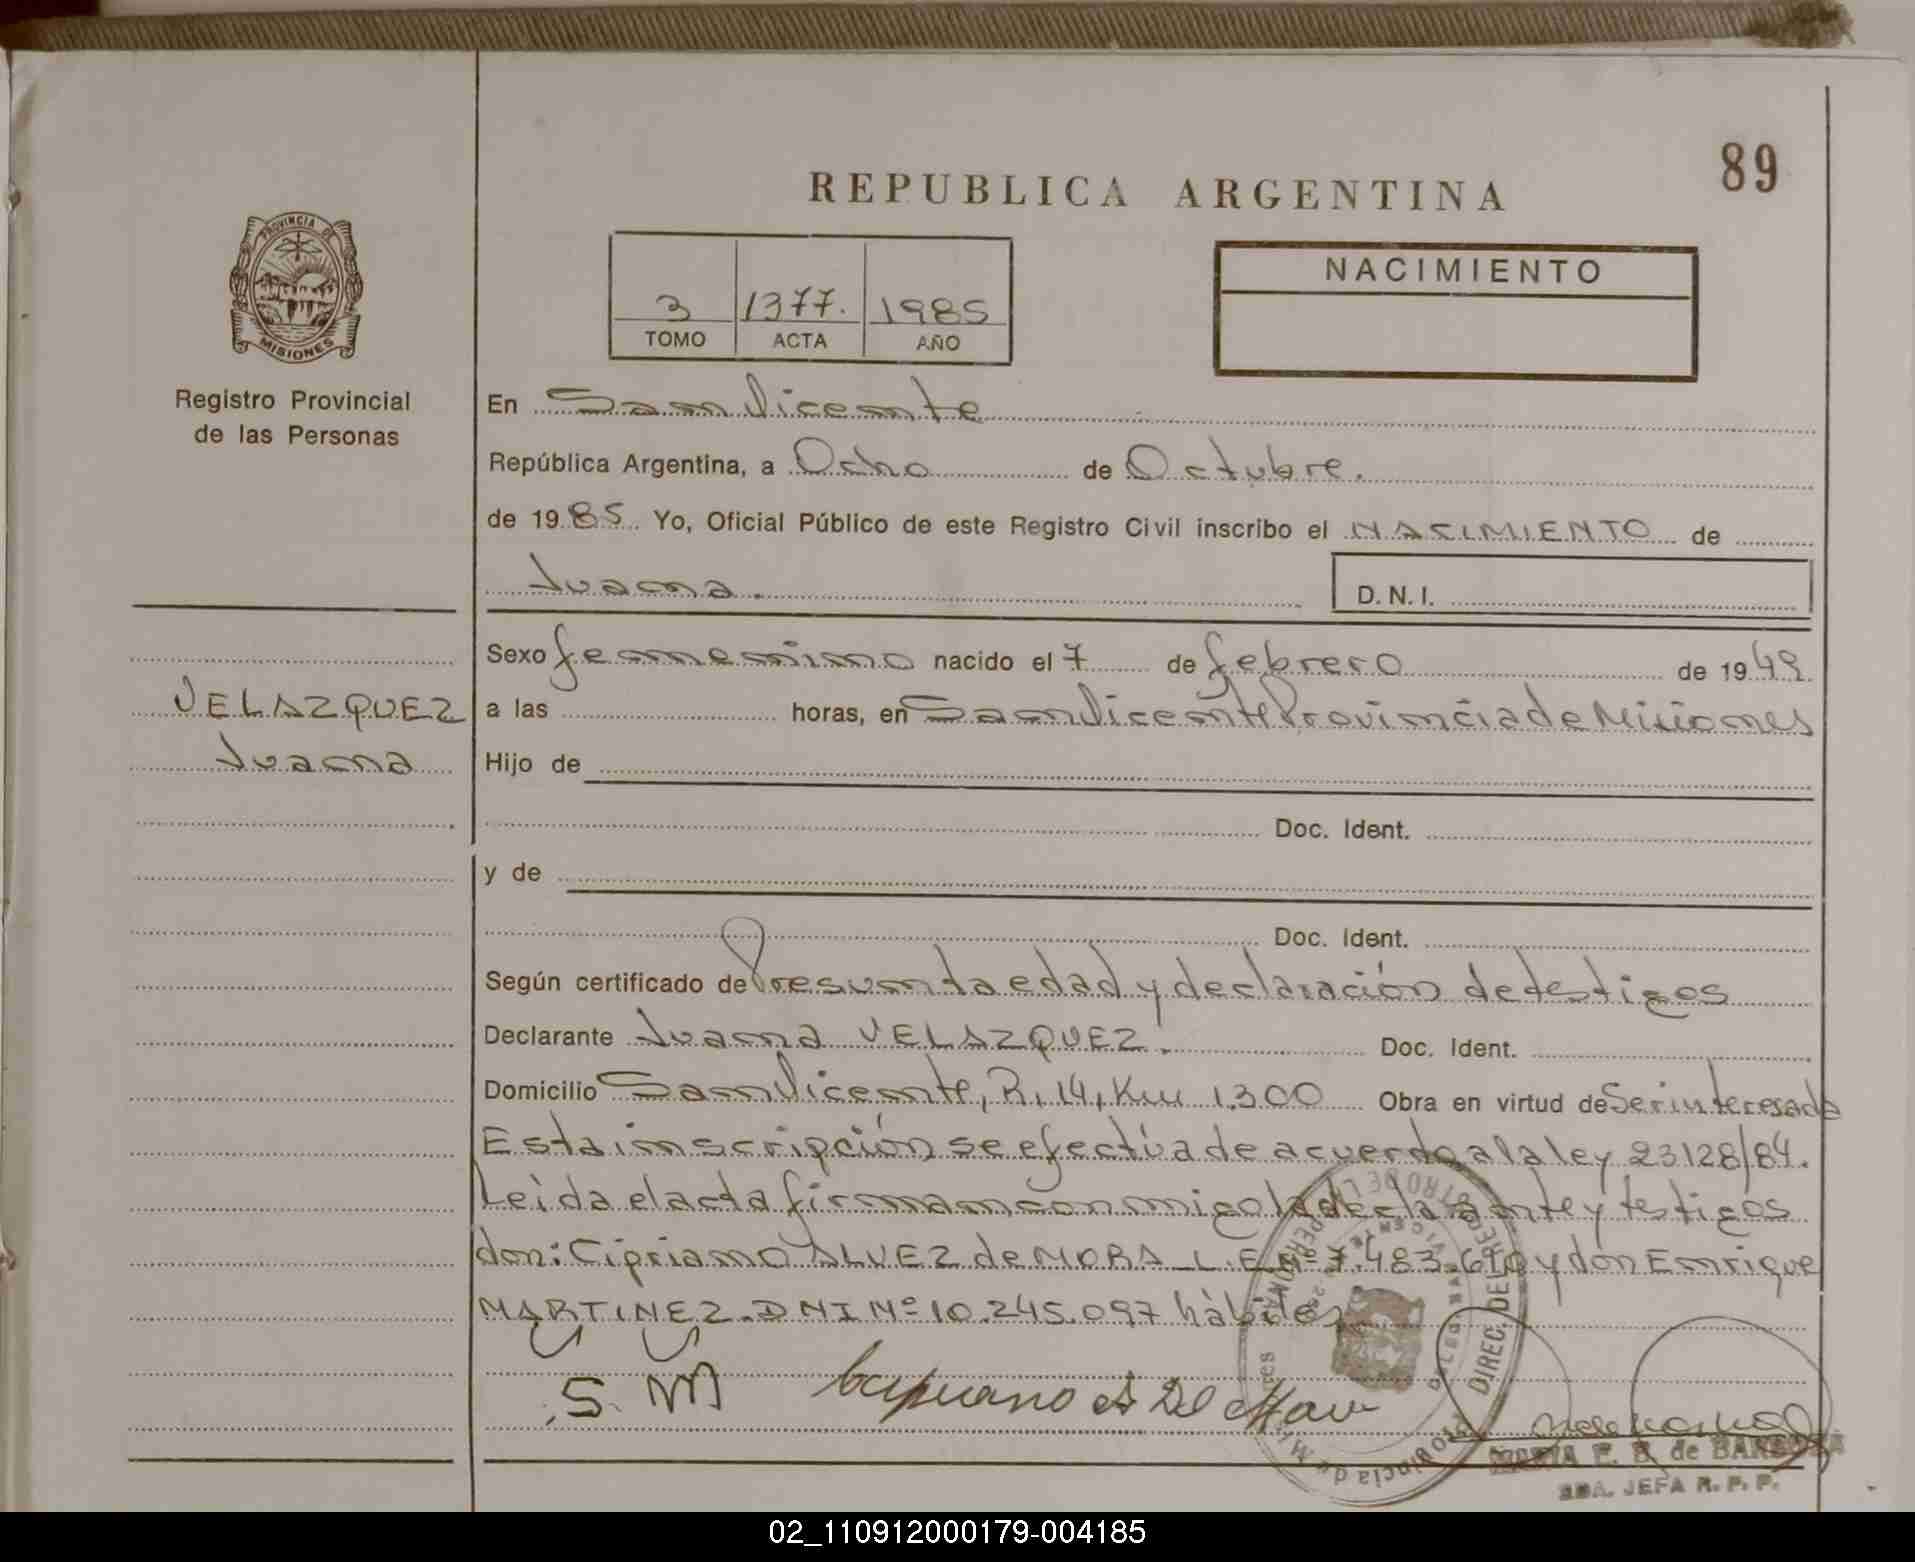 89
REPUBLICA ARGENTINA
PROVINCIA DE
MISIONES
NACIMIENTO
3 1377. 1985
TOMO ACTA AÑO
Registro Provincial
de las Personas
En San Vicente
República Argentina, a Ocho de Octubre.
de 1985 Yo, Oficial Público de este Registro Civil inscribo el NACIMIENTO de
Juana.
D.N.I.
Sexo femenino nacido el 7 de febrero de 1949
VELAZQUEZ
Juana
a las horas, en San Vicente Provincia de Misiones
Hijo de
Doc. Ident.
y de
Doc. Ident.
Según certificado de Presunta edad y declaración de testigos
Declarante Juana VELAZQUEZ. Doc. Ident.
Domicilio San Vicente, R. 14, Km 1.300 Obra en virtud de Ser interesada
Esta inscripción se efectúa de acuerdo a la ley 23128/84.
Leida el acta firman conmigo la declarante y testigos
don: Cipriano ALVEZ de MORA L.E. Nº 7.483.610 y don Enrique
MARTINEZ. DNI Nº 10.245.097 hábiles
S. M
de BARBOZA
SBA. JEFA R. P. P.
Provincia de Misiones
DIREC. DEL
02_110912000179-004185